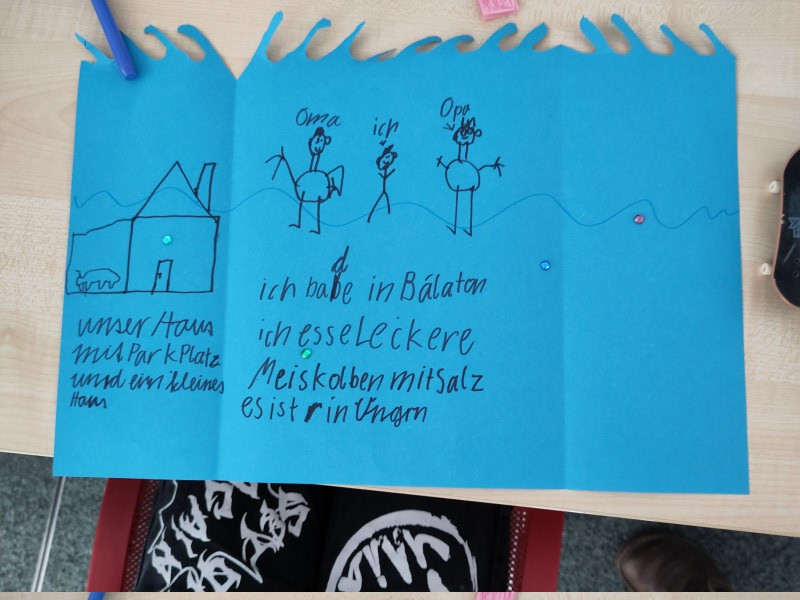 Oma
ich
Opa
unser Haus
mit ParkPlatz
und ein kleines
Haus
ich bade in Bálaton
ich esse Leckere
Meiskolben mit Salz
es ist in Ungarn